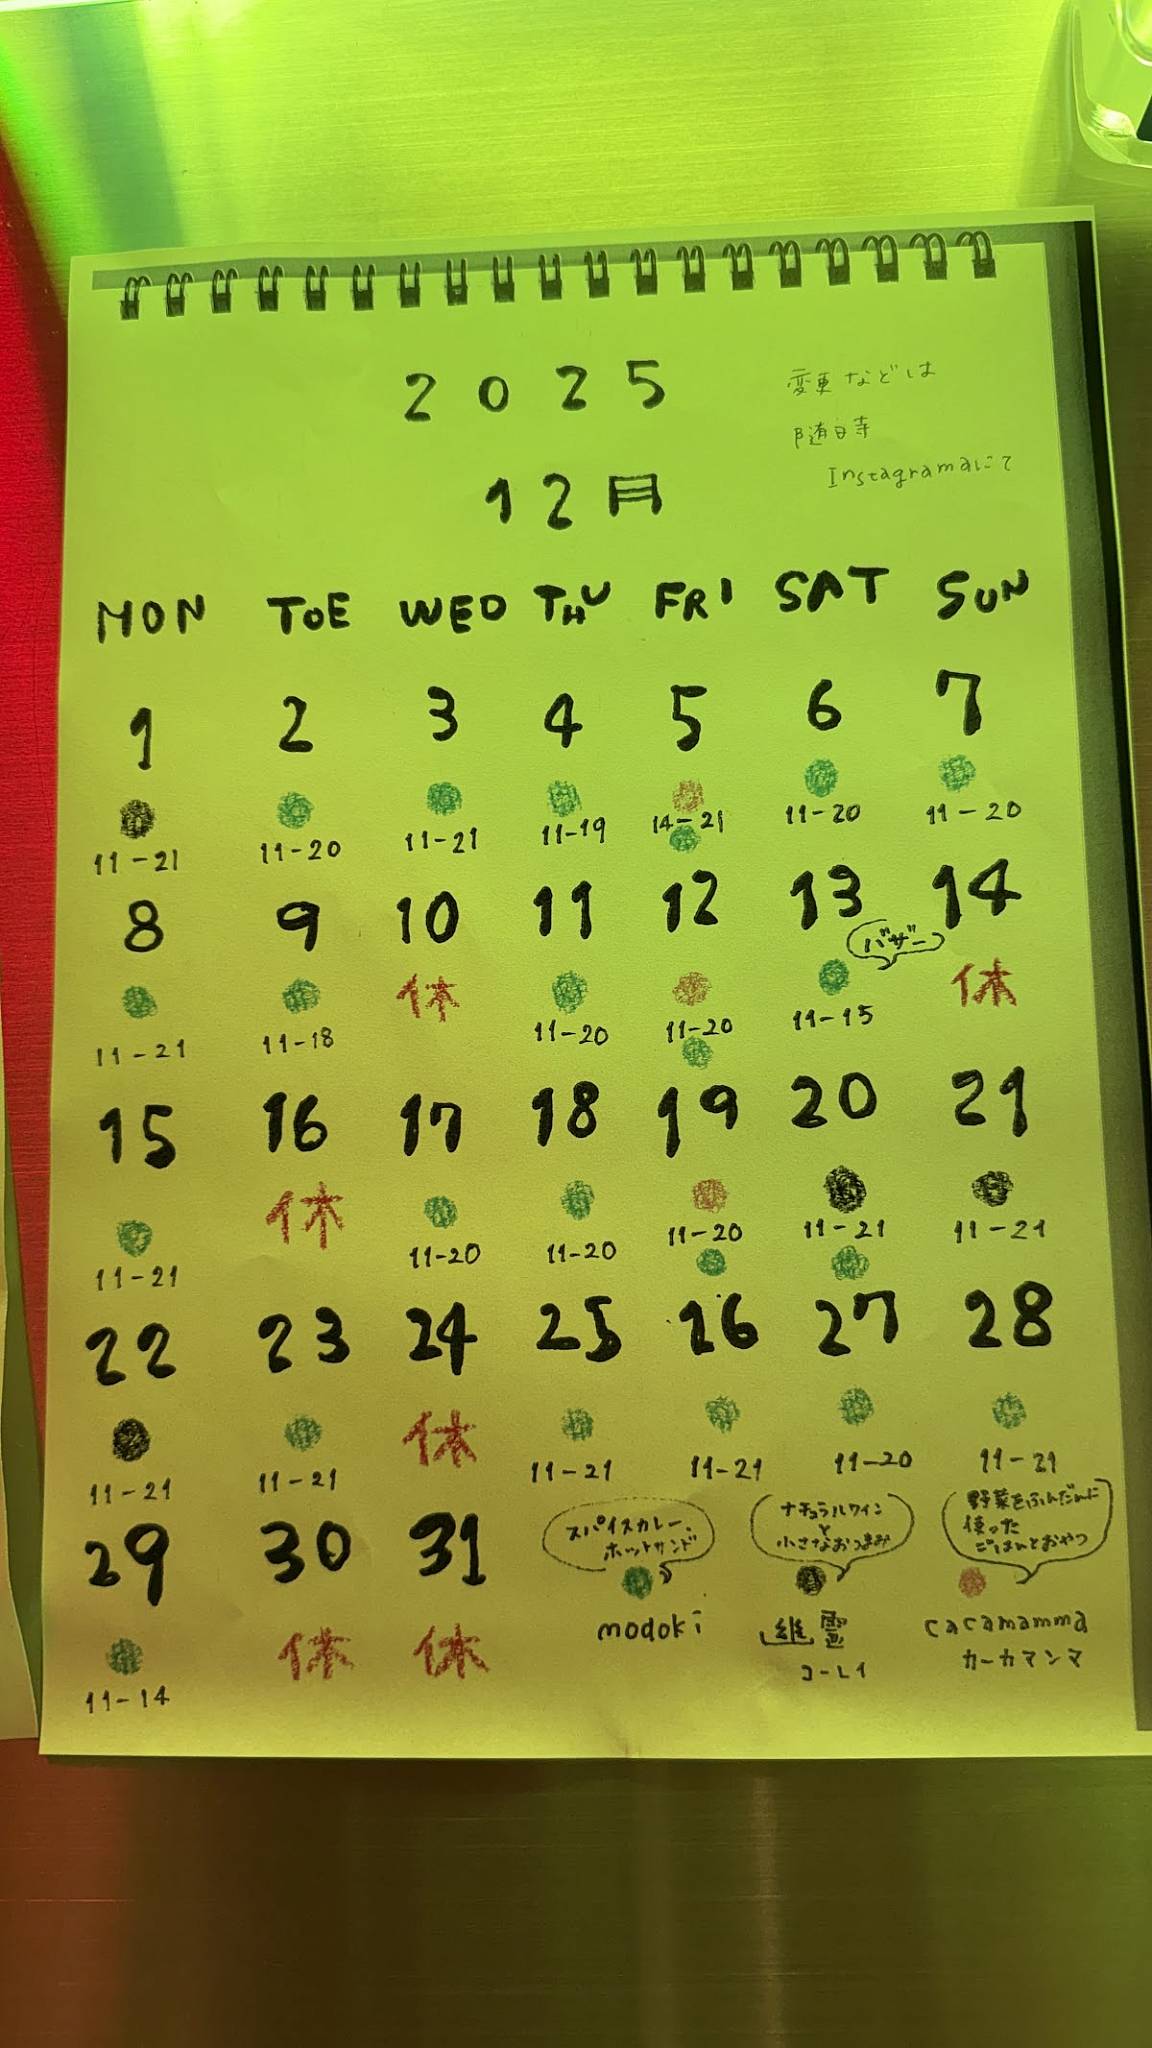 2025
12月
変更などは
随時
Instagramaにて
MON TUE WED THU FRI SAT SUN
1 2 3 4 5 6 7
11-21 11-20 11-21 11-19 14-21 11-20 11-20
8 9 10 11 12 13 14
バザー
11-21 11-18 休 11-20 11-20 11-15 休
15 16 17 18 19 20 21
11-21 休 11-20 11-20 11-20 11-21 11-21
22 23 24 25 26 27 28
11-21 11-21 休 11-21 11-21 11-20 11-21
29 30 31
11-14 休 休
スパイスカレー、
ホットサンド
modoki
ナチュラルワイン
と
小さなおつまみ
コーレイ
野菜をふんだんに
使った
ごはんとおやつ
cacamamma
カーカマンマ